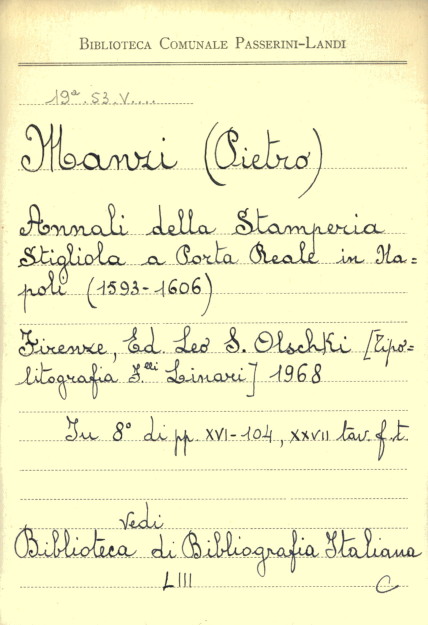 BIBLIOTECA COMUNALE PASSERINI-LANDI
19ª.53.V....
Manzi (Pietro)
Annali della Stamperia
Stigliola a Porta Reale in Na=
poli (1593-1606)
Firenze, Ed. Leo S. Olschki [Tipo=
litografia F.lli Linari] 1968
In 8° di pp. XVI-104, XXVII tav. f.t.
vedi
Biblioteca di Bibliografia Italiana
LIII
C